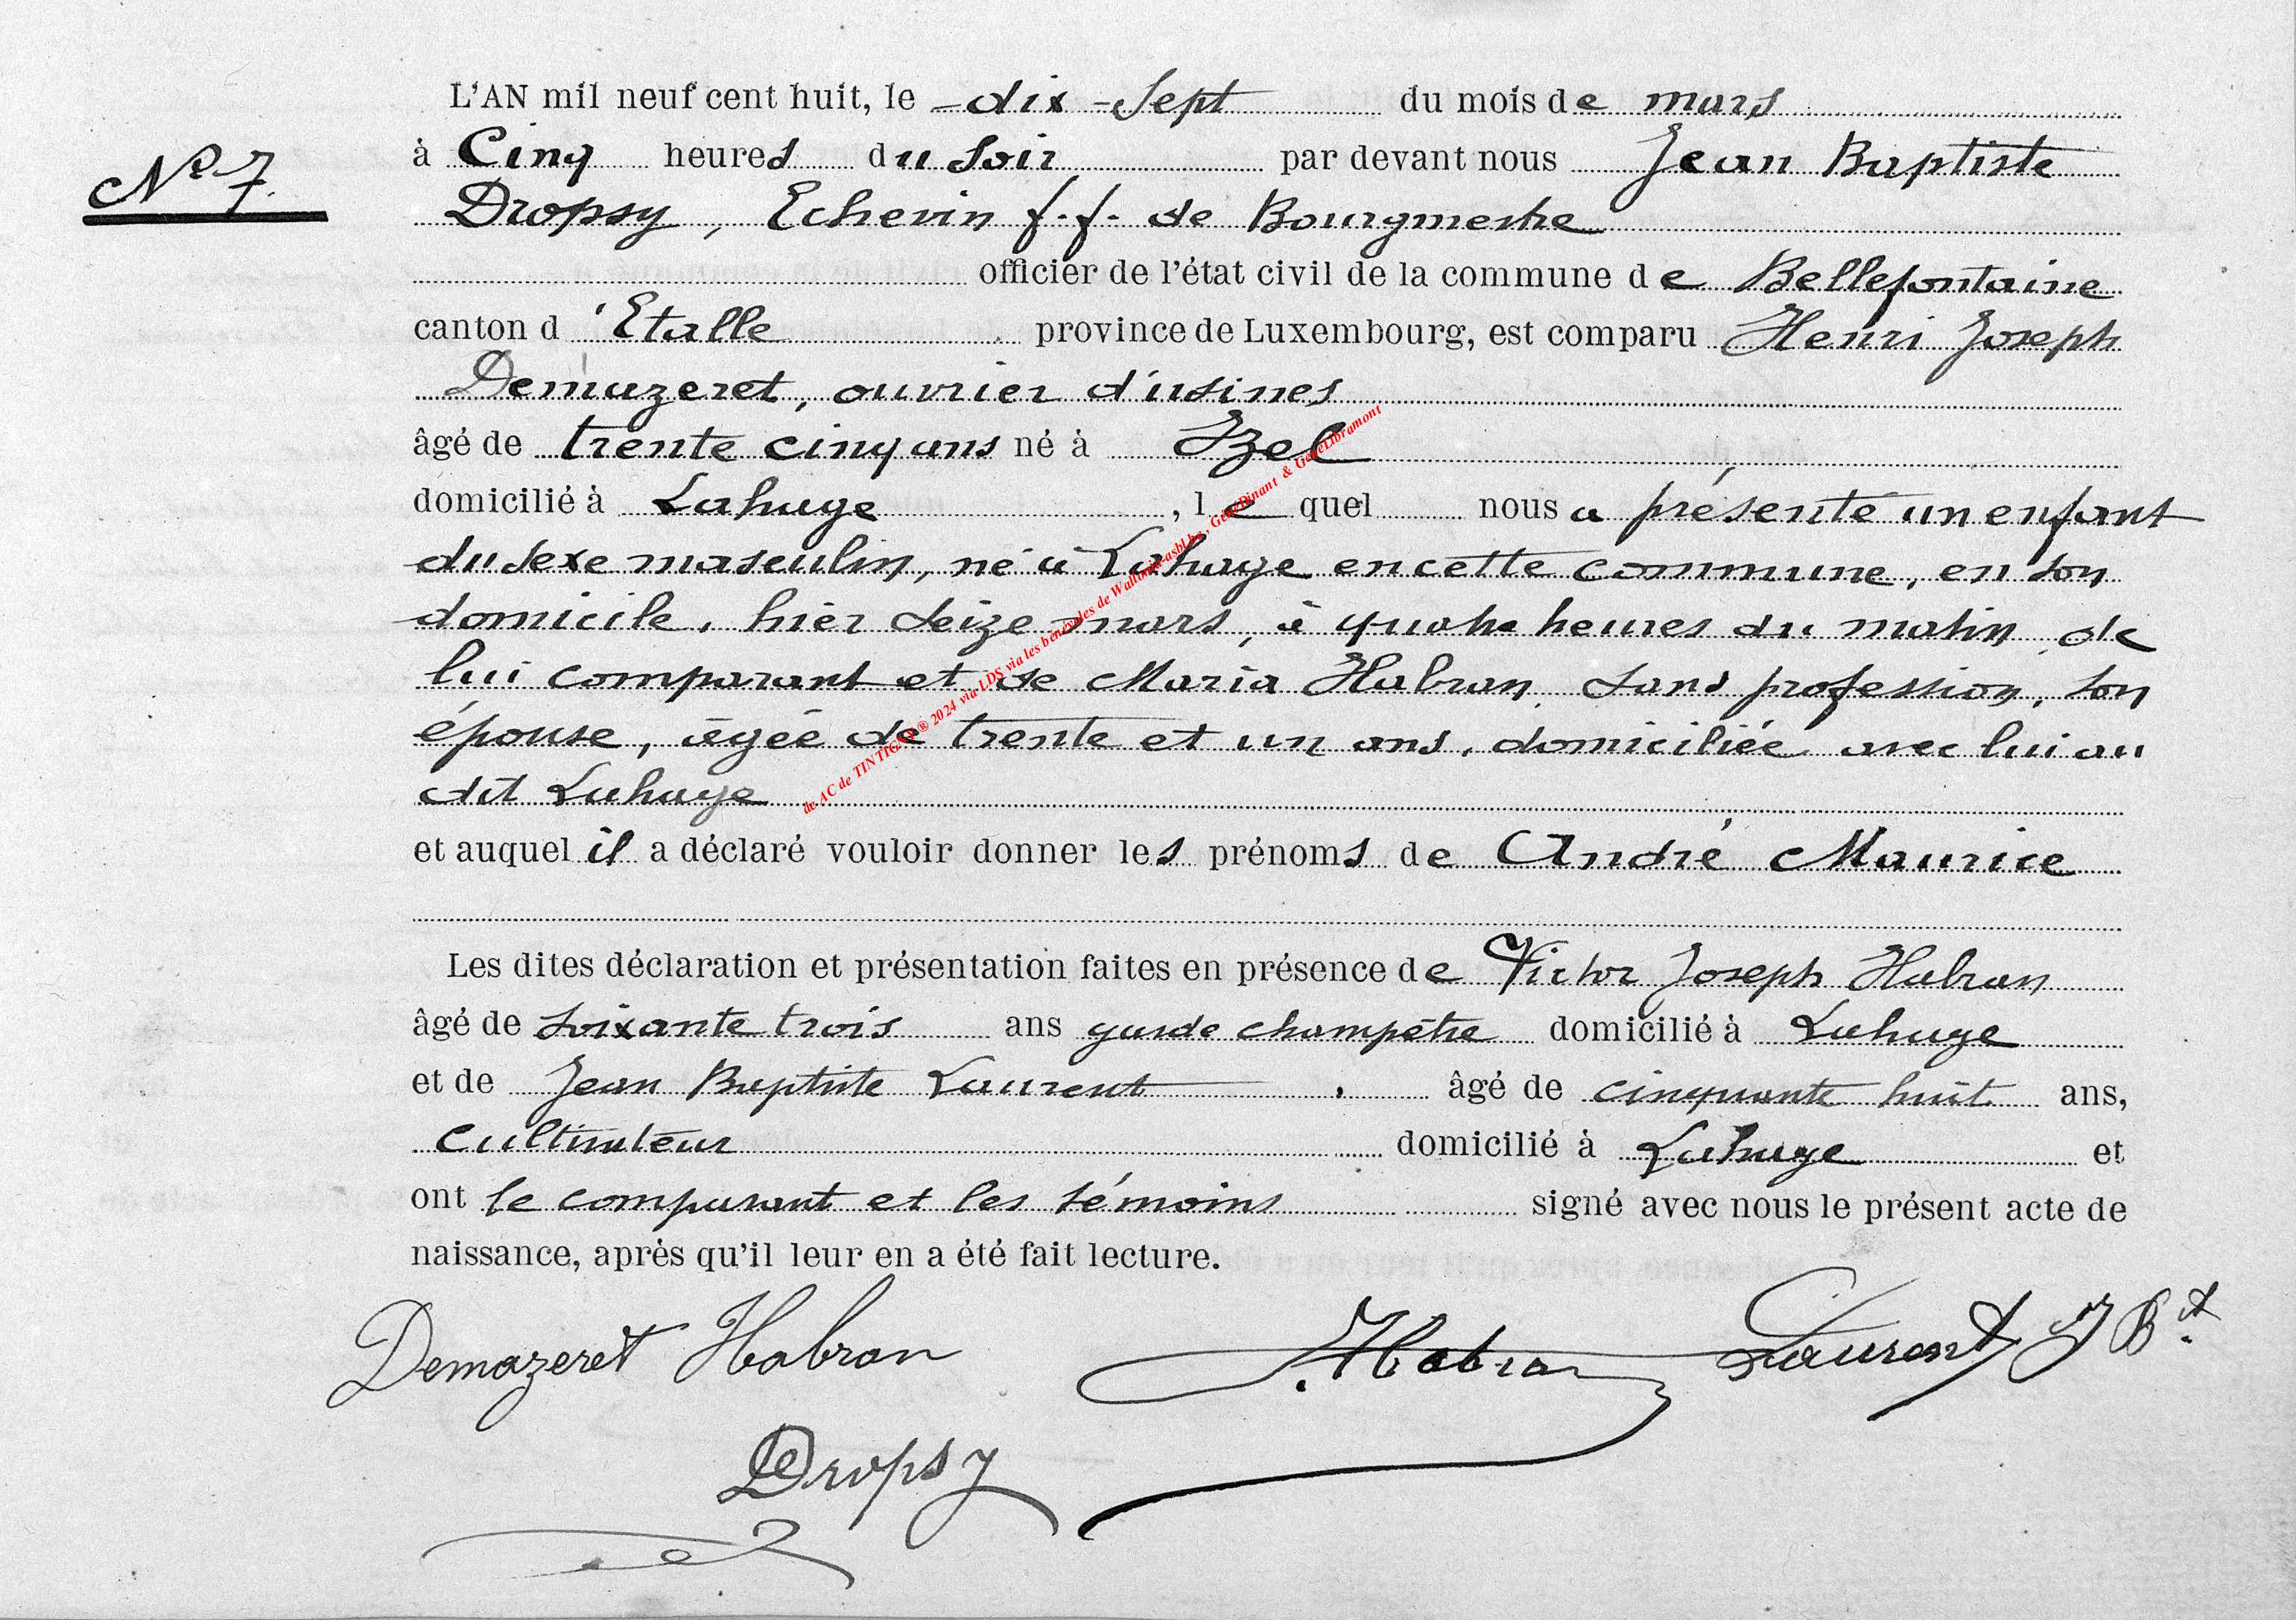 L'AN mil neuf cent huit, le dix-sept du mois de mars
N° 7.
à Cinq heures du soir par devant nous Jean Baptiste
Dropsy, Echevin f.f. de Bourgmestre
officier de l'état civil de la commune de Bellefontaine
canton d'Etalle province de Luxembourg, est comparu Henri Joseph
Demazeret, ouvrier d'usines
âgé de trente cinq ans né à Izel
domicilié à Lahage, lequel nous a présenté un enfant
du sexe masculin, né à Lahage en cette commune, en son
domicile, hier seize mars, à quatre heures du matin, de
lui comparant et de Maria Habran, sans profession, son
épouse, âgée de trente et un ans, domiciliée avec lui au
dit Lahage
et auquel il a déclaré vouloir donner les prénoms de André Maurice
Les dites déclaration et présentation faites en présence de Victor Joseph Habran
âgé de soixante trois ans garde champêtre domicilié à Lahage
et de Jean Baptiste Laurent, âgé de cinquante huit ans,
cultivateur domicilié à Lahage et
ont le comparant et les témoins signé avec nous le présent acte de
naissance, après qu'il leur en a été fait lecture.
Demazeret Habran J. Habran Laurent J Bt.
Dropsy
de AC de TINTIGNY ® 2024 via LDS via les bénévoles de Wallonia-asbl.be, GénéDinant & GénéLibramont